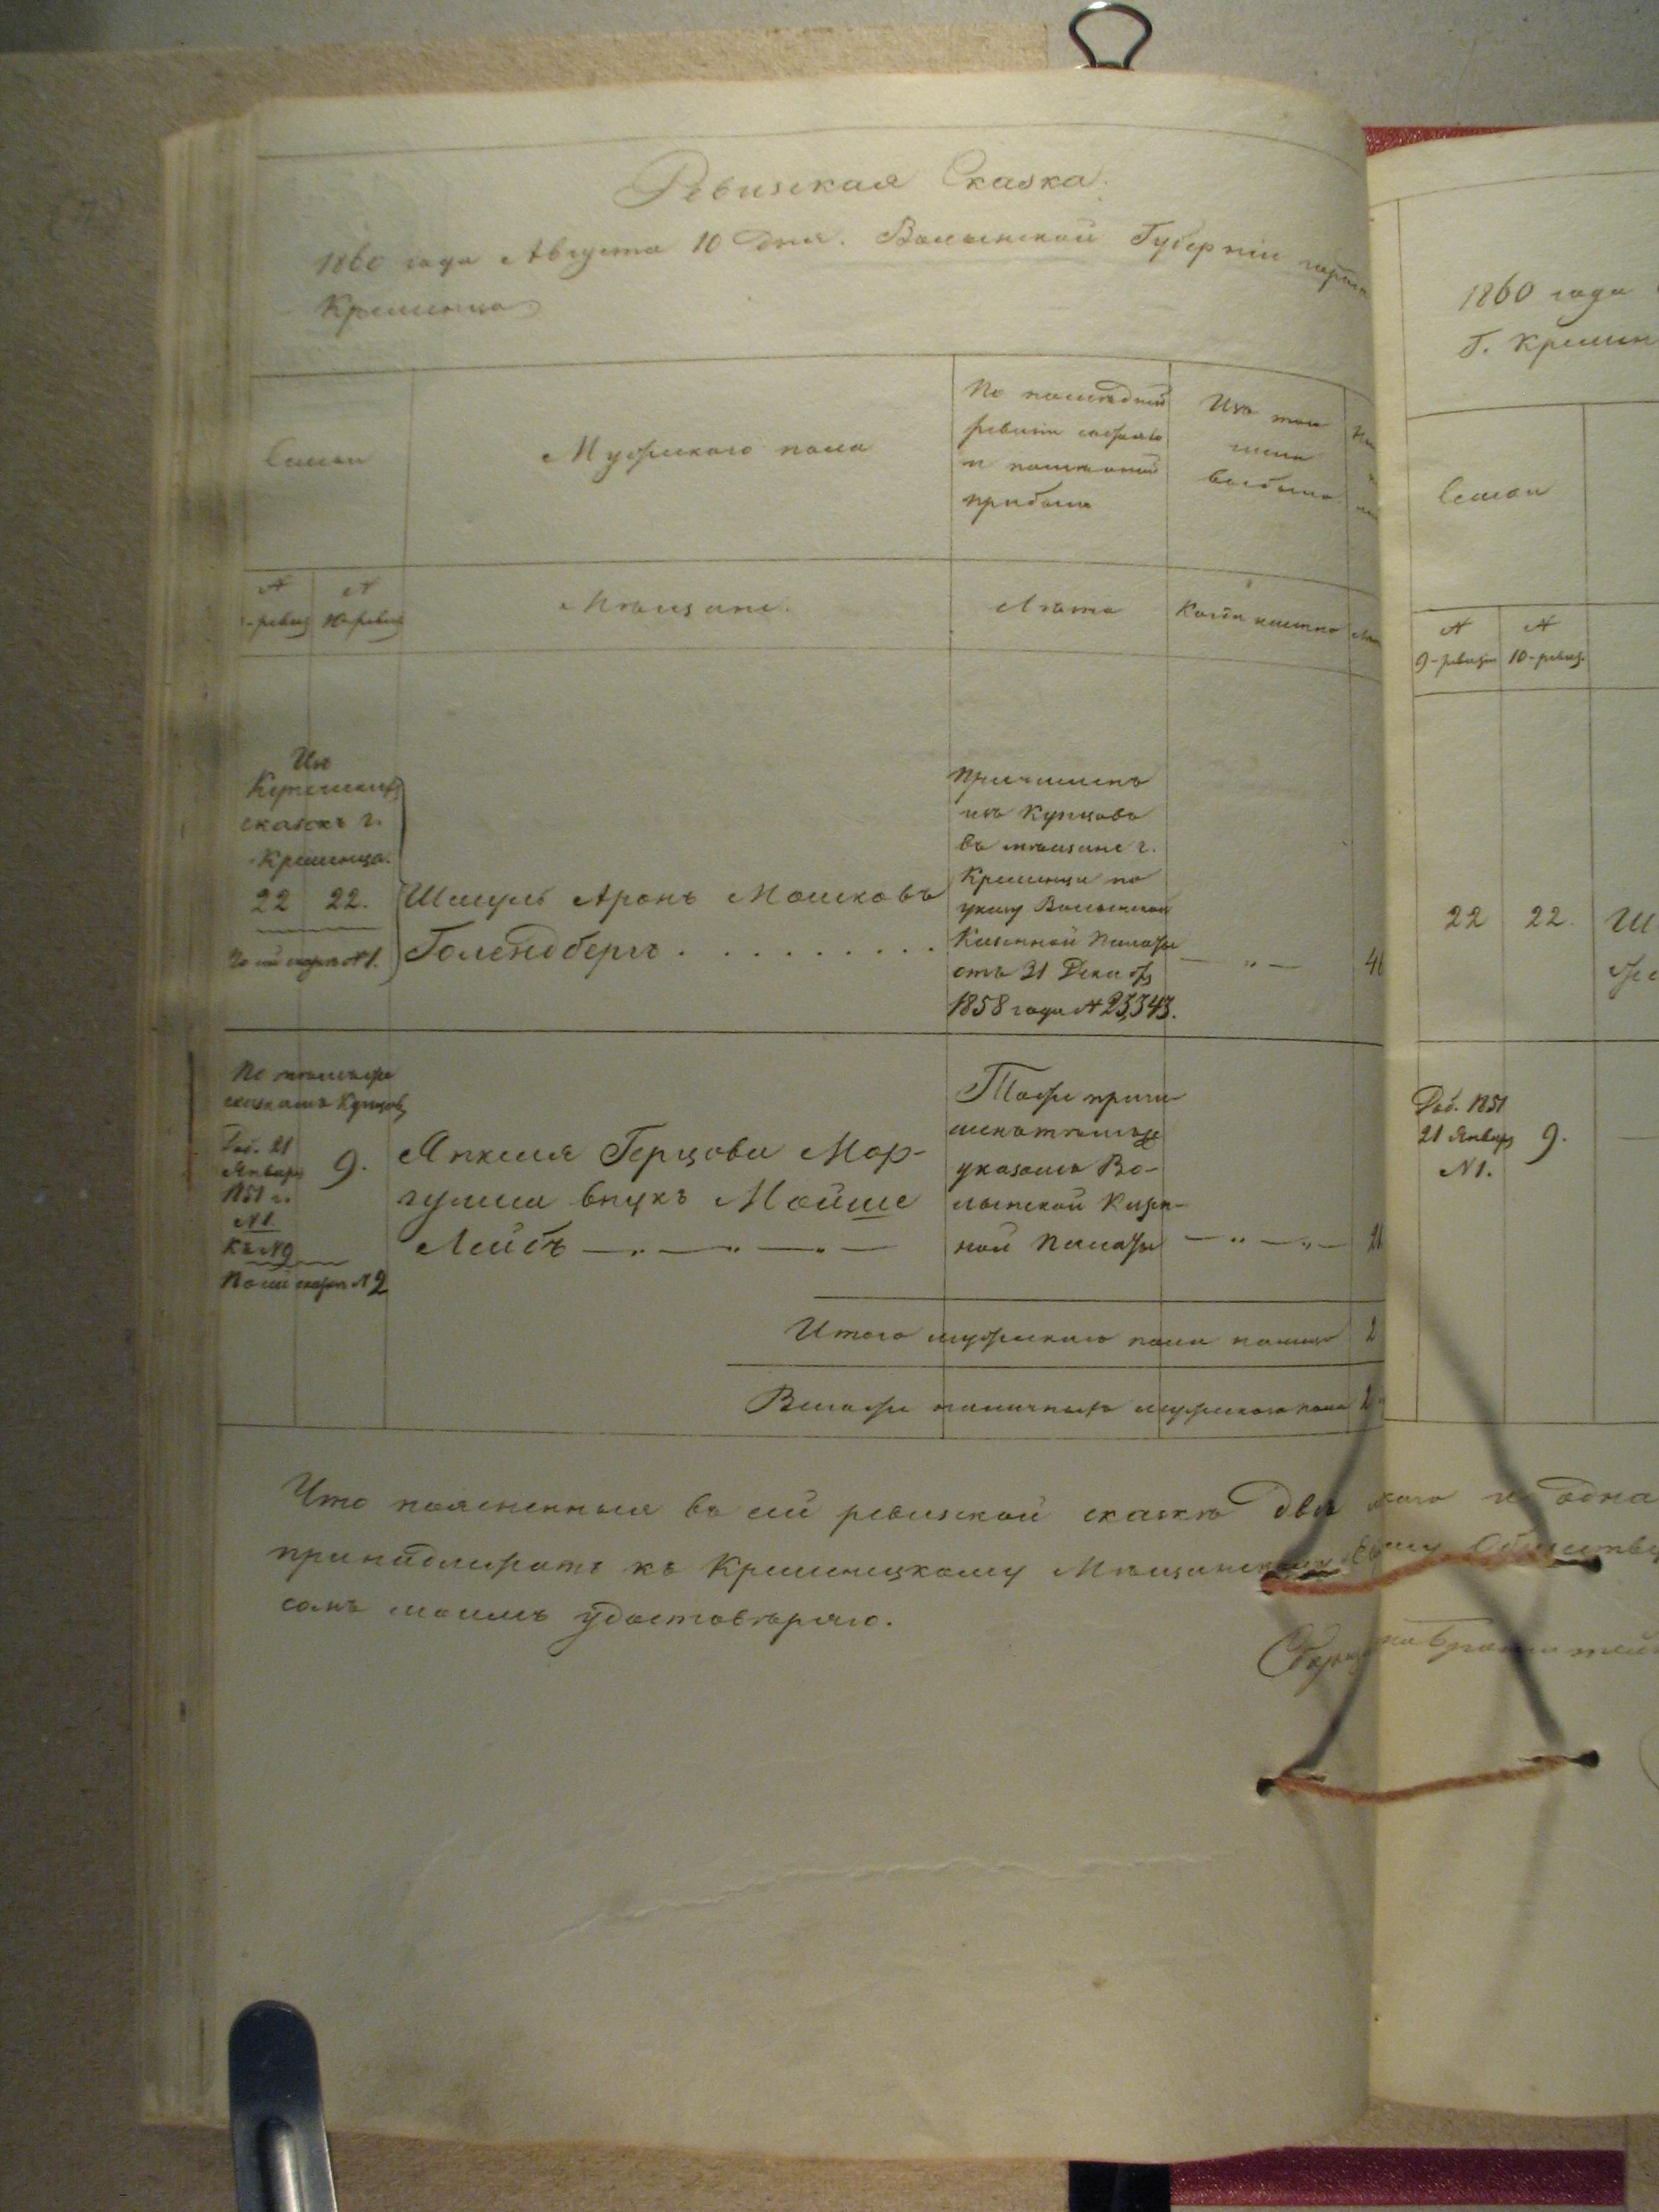 Ревизская Сказка.
1860 года Августа 10 дня. Волынской Губернiи города
Кременца
Семьи
Мужскаго пола
По последней
ревизiи состояло
и после оной
прибыло
Изъ того
числа
выбыло.
№
-ревиз
№
10-ревиз
Мѣщане.
Лѣта
Когда именно
Изъ
Купеческихъ
сказокъ г.
Кременца.
22 22.
По сей сказке №1.
Шмуль Аронъ Мошковъ
Голендбергъ
Причисленъ
изъ Купцовъ
въ мѣщане г.
Кременца по
указу Волынской
Казенной Палаты
отъ 31 Декабр
1858 года № 23,343.
— „ —
46
По
сказкамъ Купцовъ
Доб. 21
Январ
1851 г.
№1
Къ №9
9.
По сей сказке №2
Анкеля Герцова Мар-
гулиса внукъ Мойше
Лейбъ — „ — „ — „ —
Тоже причи-
сленъ темъ же
указомъ Во-
лынской Казен-
ной Палаты
— „ — „ —
21
Итого мужскаго пола налицо 2
Всего же наличныхъ мужскаго пола 2
Что поясненныя въ сей ревизской сказкѣ два
принадлежатъ къ Кременецкому Мѣщанскому
симъ моимъ удостовѣряю.
1860 года
Г. Кремен
Семьи
№
9-ревизи
№
10-ревиз.
22 22. Ш
Доб. 1851
21 Январ
№1.
9.
и одна
Обществу